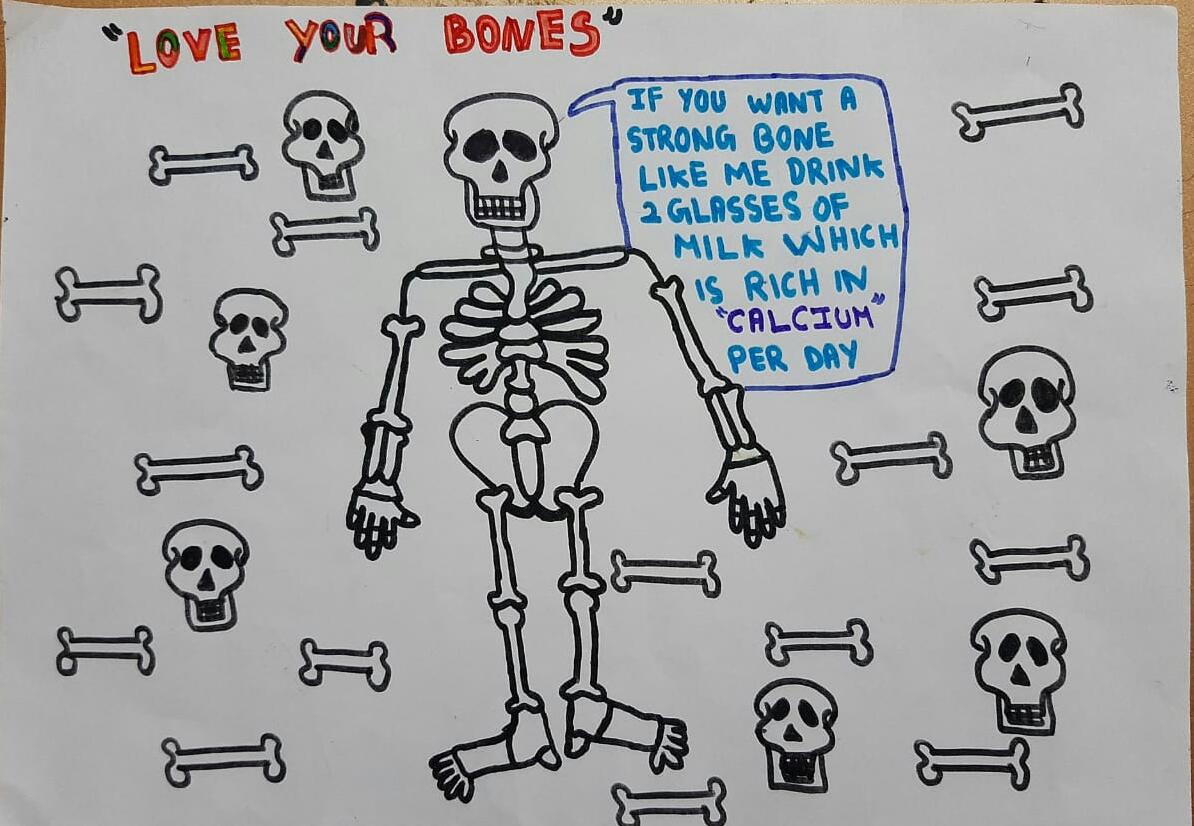 "LOVE YOUR BONES"
IF YOU WANT A
STRONG BONE
LIKE ME DRINK
2 GLASSES OF
MILK WHICH
IS RICH IN
"CALCIUM"
PER DAY